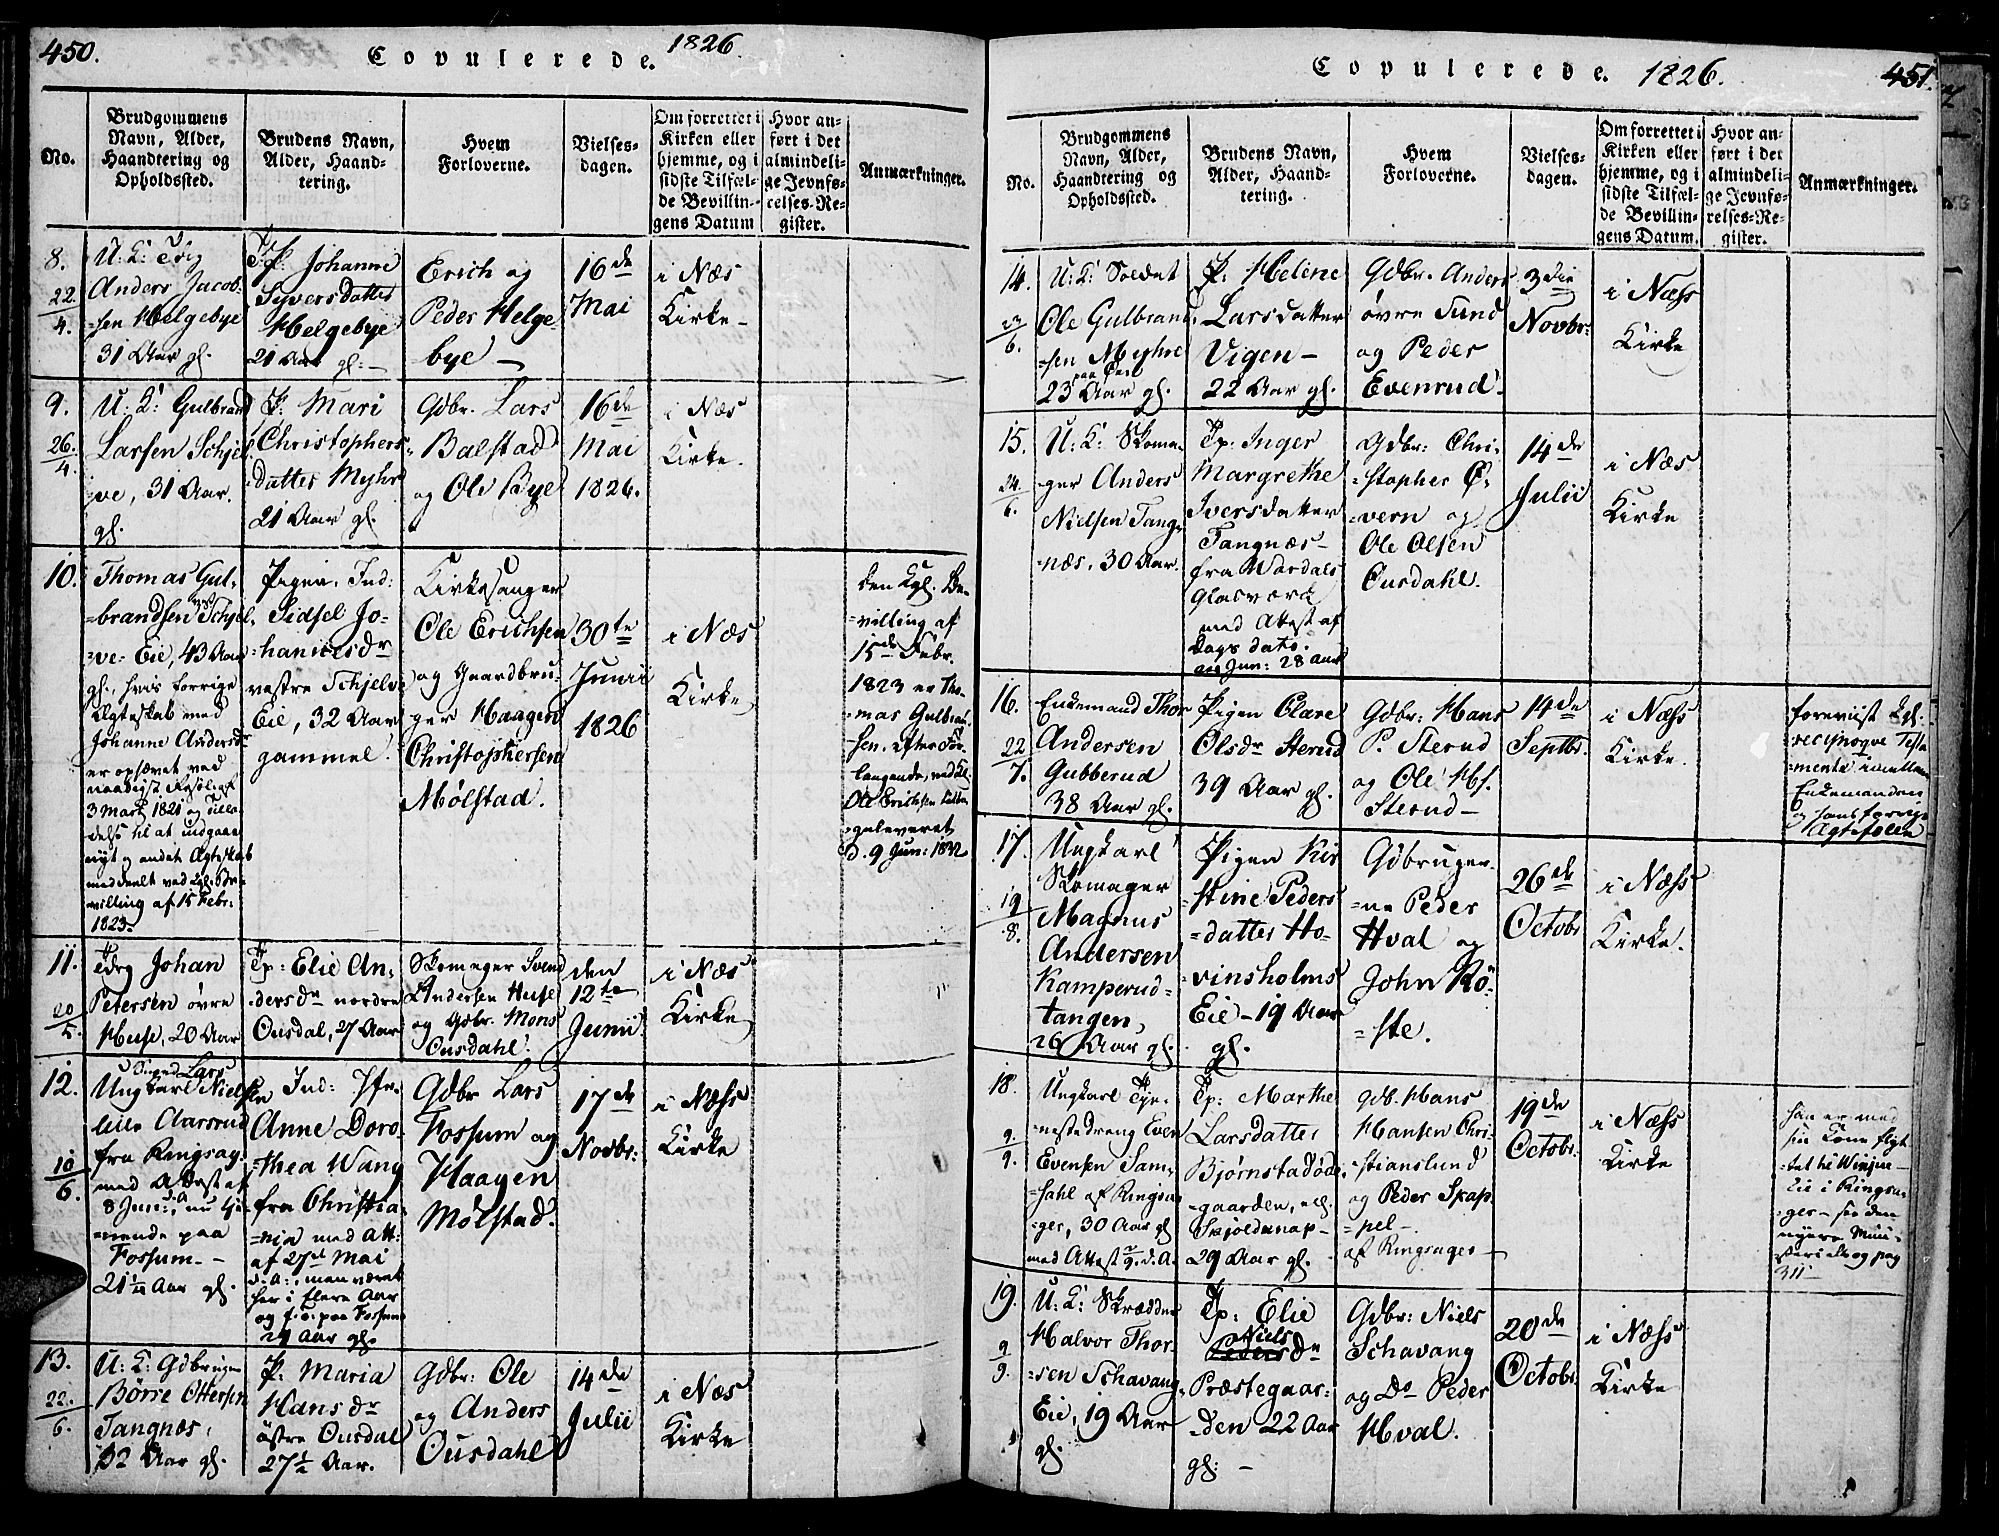 450.
Copulerede.
1826
No.
Brudgommens
Navn, Alder,
Haandtering og
Opholdssted.
Brudens Navn,
Alder, Haand-
tering.
Hvem
Forloverne.
Vielses-
dagen.
Om forrettet i
Kirken eller
hjemme, og i
sidste Tilfæl-
de Bevillin-
gens Datum
Hvor an-
ført i det
almindeli-
ge Jevnfø-
relses-Re-
gister.
Anmærkninger.
8.
22/4.
U: K:
Anders Jacob-
=sen Helgebye
31 Aar gl.
Johanne
Syversdatter
Helgebye
21 Aar gl: -
Erich og
Peder Helge
bye -
16de
Mai
i Næs
Kirke -
9.
26/4.
U: K: Gulbrand
Larsen Schjel
=ve, 31 Aar.
gl.
P: Mari
Christophers-
datter Myhre
21 Aar gl.
Gdbr. Lars
Balstad
og Ole Bye
16de
Mai
1826.
i Næs
Kirke.
10.
Thomas Gul-
=brandsen Schjel-
=ve- Eie, 43 Aar
gl., hvis forrige
Ægteskab med
Johanne Andersdr
er ophævet ved
naadigst Resol: af
3 Mart 1821 og Tilla-
delse til at indgaae
nyt og andet Ægteskab
meddeelt ved Kgl. Be-
villing af 15 Febr:
1823.
Pigen, Ind:
Sidsel Jo-
=hannesdr
vestre Schjelve
Eie, 32 Aar
gammel.
Kirkesanger
Ole Erichsen
og Gaardbru-
ger Haagen
Christophersen
Mølstad.
30te
Junii
1826
i Næs
Kirke
Den Kgl. Be-
=villing af
15de Febr.
1823 er Tho-
=mas Gulbran-
sen, efter For-
langende, ved Kl.
Ole Erichsen
=guleveret
D. 9 Jun: 1832
11.
20/5.
Johan
Petersen øvre
Huse, 20 Aar
Tp: Elie An-
=dersdr nordre
Ousdal, 27 Aar
Skomager Svend
Andersen Huse
og Gdbr. Mons
Ousdahl.
den
12te
Junii
i Næs
Kirke
12.
10/6.
Lars
Ungkarl Niel
Aarsrud
fra Ringsag.
med Attest af
8 Jun: d.A., nu tje-
=nende paa
Fossum -
Aar gl.
Ind:
Anne Doro-
=thea Wang
fra Christia-
=nia med Att:
af 27de Mai
d.A., men været
her i flere Aar
og paa Fossum
29 Aar gl.
Gdbr Lars
Fossum og
Haagen
Mølstad.
17de
Novbr:
i Næss
Kirke
13.
22/6.
U: K: Gdbruger
Børre Ottersen
Tangnæs,
Aar gl.
P: Maria
Hansdr
østre Ousdal
27½ Aar.
Gdbr: Ole
og Anders
Ousdahl
14de
Julii
i Næs
Kirke
Copulerede. 1826.
451.
No.
Brudgommens
Navn, Alder,
Haandtering og
Opholdssted.
Brudens Navn,
Alder, Haand-
tering.
Hvem
Forloverne.
Vielses-
dagen.
Om forrettet i
Kirken eller
hjemme, og i
sidste Tilfæl-
de Bevillin-
gens Datum.
Hvor an-
ført i det
almindeli-
ge Jevnfø-
relses-Re-
gister.
Anmærkninger.
14.
23/6.
U: K: Soldat
Ole Gulbrand-
=sen Myhre
23 Aar gl.
P: Helene
Larsdatter
Vigen -
22 Aar gl.
Gdbr. Anders
øvre Sund
og Peder
Evenrud.
3die
Novbr:
i Næss
Kirke
15.
24/6.
U: K: Skoma-
=ger Anders
Nielsen Tang-
=næs, 30 Aar.
Tp: Inger
Margrethe
Iversdatter
Tangnæs -
fra Wardals
Glasværk
med Attest af
Dags dato.
28 Aar
Gdbr: Chri-
=stopher Ø-
=vern og
Ole Olsen
Ousdahl.
14de
Julii
i Næs
Kirke
16.
22/7.
Enkemand Thor
Andersen
Gubberud
38 Aar gl.
Pigen Clare
Olsdr Sterud
39 Aar gl.
Gdbr: Hans
P. Sterud
og Ole Hs.
Sterud -
14de
Septbr.
i Næss
Kirke.
foreviist Kgl.
reciproqve Testa
=mente imellem
Enkemanden
og hans forrige
Ægtefælle
17.
19/8.
Ungkarl
Skomager
Magnus
Andersen
Kamperud-
tangen,
26 Aar gl.
Pigen Kir
=stine Peders
=datter Ho-
=vinsholms
Eie - 19 Aar
gl.
Gdbruger-
=ne Peder
Hval og
John Rö-
=ste.
26de
Octobr
i Næss
Kirke.
18.
9/9.
Ungkarl Tje-
=nestedreng Even
Evensen Sam-
=dahl af Ringsa
=ger, 30 Aar gl
med Attest d. A.
Tp: Marthe
Larsdatter
Bjørnstadøde-
=gaarden, ell.
Skjoldsnap -
29 Aar gl.
Gdb. Hans
Hansen Chri-
=stianslund
og Peder Skap-
=pel -
af Ringsager -
19de
Octobr:
i Næss
Kirke
han er med
sin Kone flyt
=tet til
Eie i Ringsa-
=ger - see den
nyere Mini-
=sterialbog pag
311 -
19.
9/9.
U: K: Skrædder
Halvor Thor-
=sen Schavang-
Eie, 19 Aar
gl.
Tp: Elie
Niels
Pedersdr
Præstegaar-
=den 22 Aar
gl: -
Gdbr: Niels
Schavang
og Do Peder
Hval.
20de
Octobr.
i Næss
Kirke